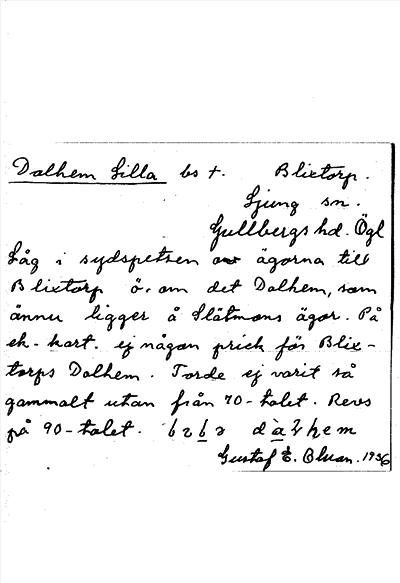 Dalhem Lilla bs +. Blixtorp.
Ljung sn.
Gullbergs hd. Ögl
Låg i sydspetsen av ägorna till
Blixtorp ö. om det Dalhem, som
ännu ligger å Slätmons ägor. På
ek-kart. ej någon prick för Blix-
torps Dalhem. Torde ej varit så
gammalt utan från 70-talet. Revs
på 90-talet.
Gustaf E. 1936